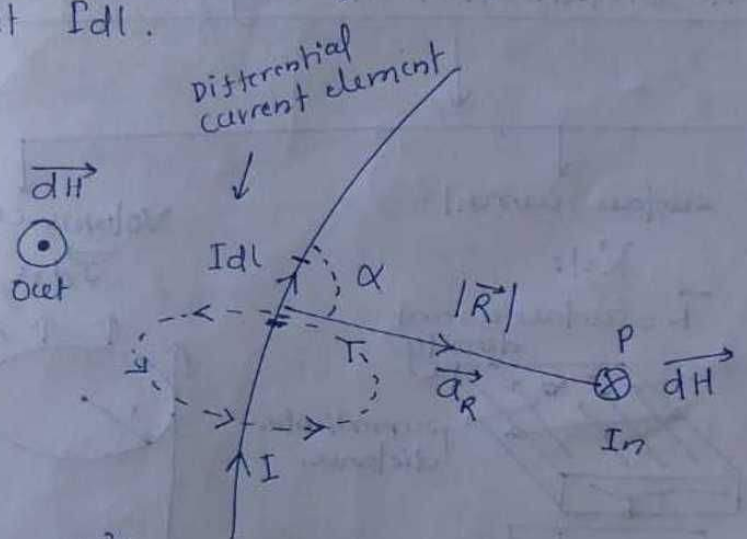 Idl.
Differential
current element
dH
Out
Idl
α
|R|
P
a_R
dH
In
I